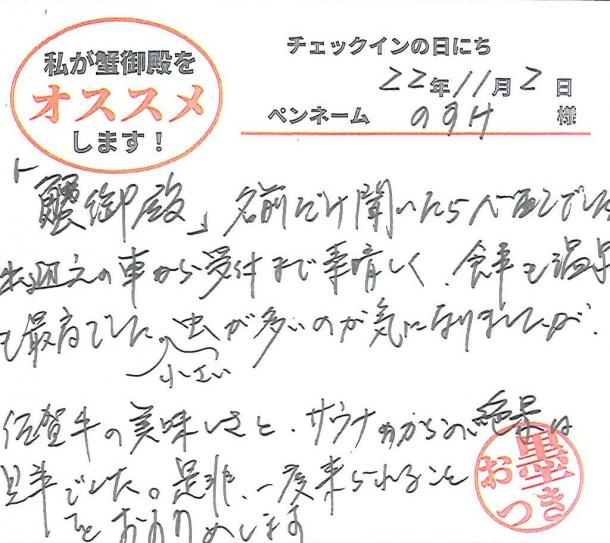 私が蟹御殿を
オススメ
します!
チェックインの日にち
22年11月2日
ペンネーム のすけ 様
「蟹御殿」名前だけ聞いたら でした
の車から受付まで素晴しく、食事も温泉
も最高でした。虫が多いのが気になりましたが、
小さい
佐賀牛の美味しさと、サウナ からの絶景は
でした。是非、一度来られること
をおすすめします
お墨つき